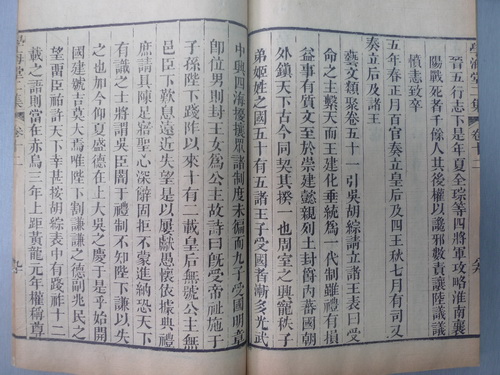 晉五行志下是年夏全琮等四將軍攻略淮南襄
陽戰死者千餘人其後權以讒邪數責讓陸議議
憤恚致卒
五年春正月百官奏立皇后及四王秋七月有司又
奏立后及諸王
藝文類聚卷五十一引吳胡綜請立諸王表曰受
命之主繫天而王建化垂統為一代制雖禮有損
益事有質文至於崇建懿親列土封爵內蕃國朝
外鎮天下古今同契其揆一也周室之興寵秩子
弟姬姓之國五十有五諸王子受國者漸多光武
中興四海擾攘眾諸制度未徧而九子受國明章
即位男則封王女為公主故詩曰既受帝祉施于
子孫陛下踐阼以來十有二載皇后無號公主無
邑臣下歎息遠近失望是以屢獻愚懷依據典禮
庶請具陳足寤聖心深辭固拒不蒙進納恐天下
有識之士將謂吳臣闇于禮制不知陛下謙以失
之也加今仰夏盛德在上大吳之慶于是乎始開
國建號吉莫大焉唯陛下割謙謙之德副兆民之
望畱臣祐許天下幸甚按胡綜表中有踐祚十二
載之語則當在赤烏三年上距黃龍元年權稱尊
學海堂二集 卷十二